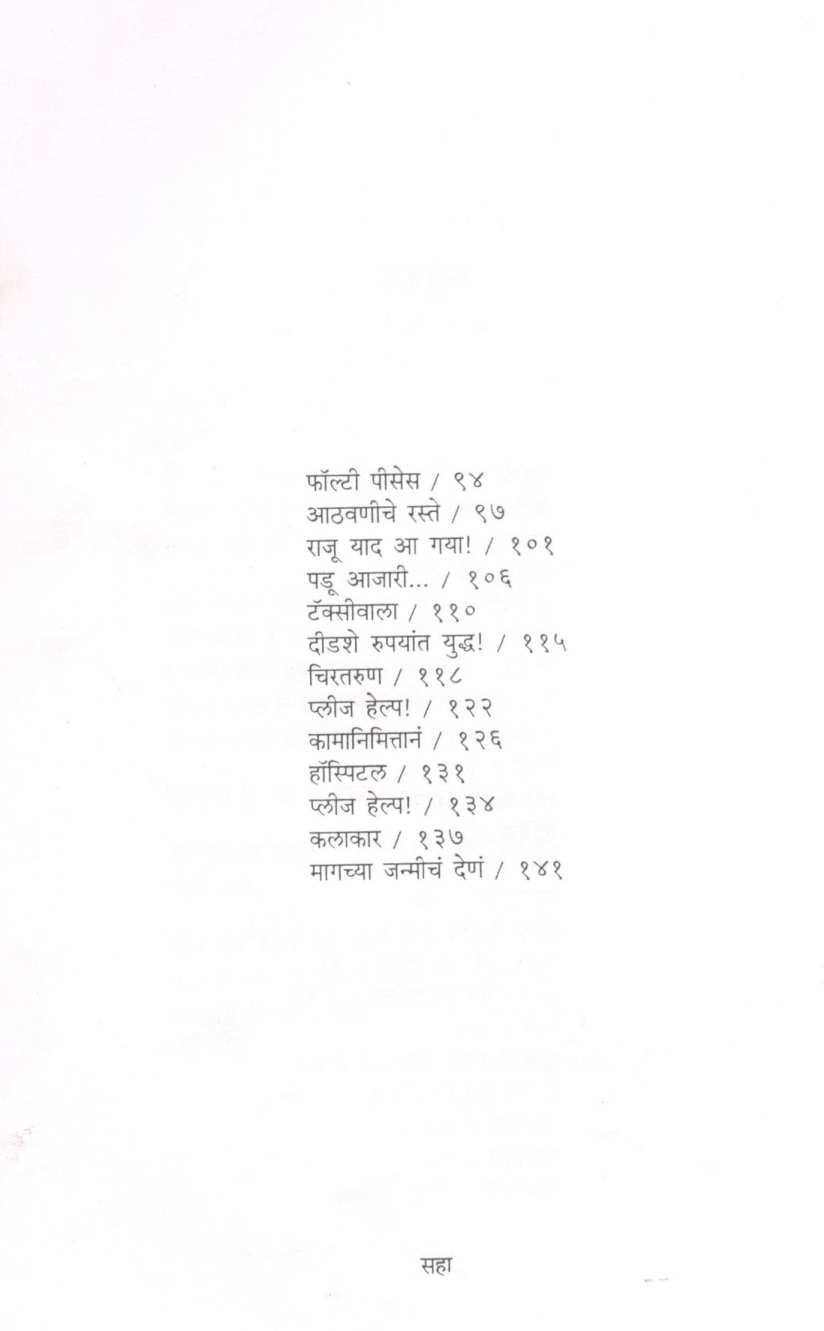 फॉल्टी पीसेस / ९४
आठवणीचे रस्ते / ९७
राजू याद आ गया! / १०१
पडू आजारी... / १०६
टॅक्सीवाला / ११०
दीडशे रुपयांत युद्ध! / ११५
चिरतरुण / ११८
प्लीज हेल्प! / १२२
कामानिमित्तानं / १२६
हॉस्पिटल / १३१
प्लीज हेल्प! / १३४
कलाकार / १३७
मागच्या जन्मीचं देणं / १४१
सहा